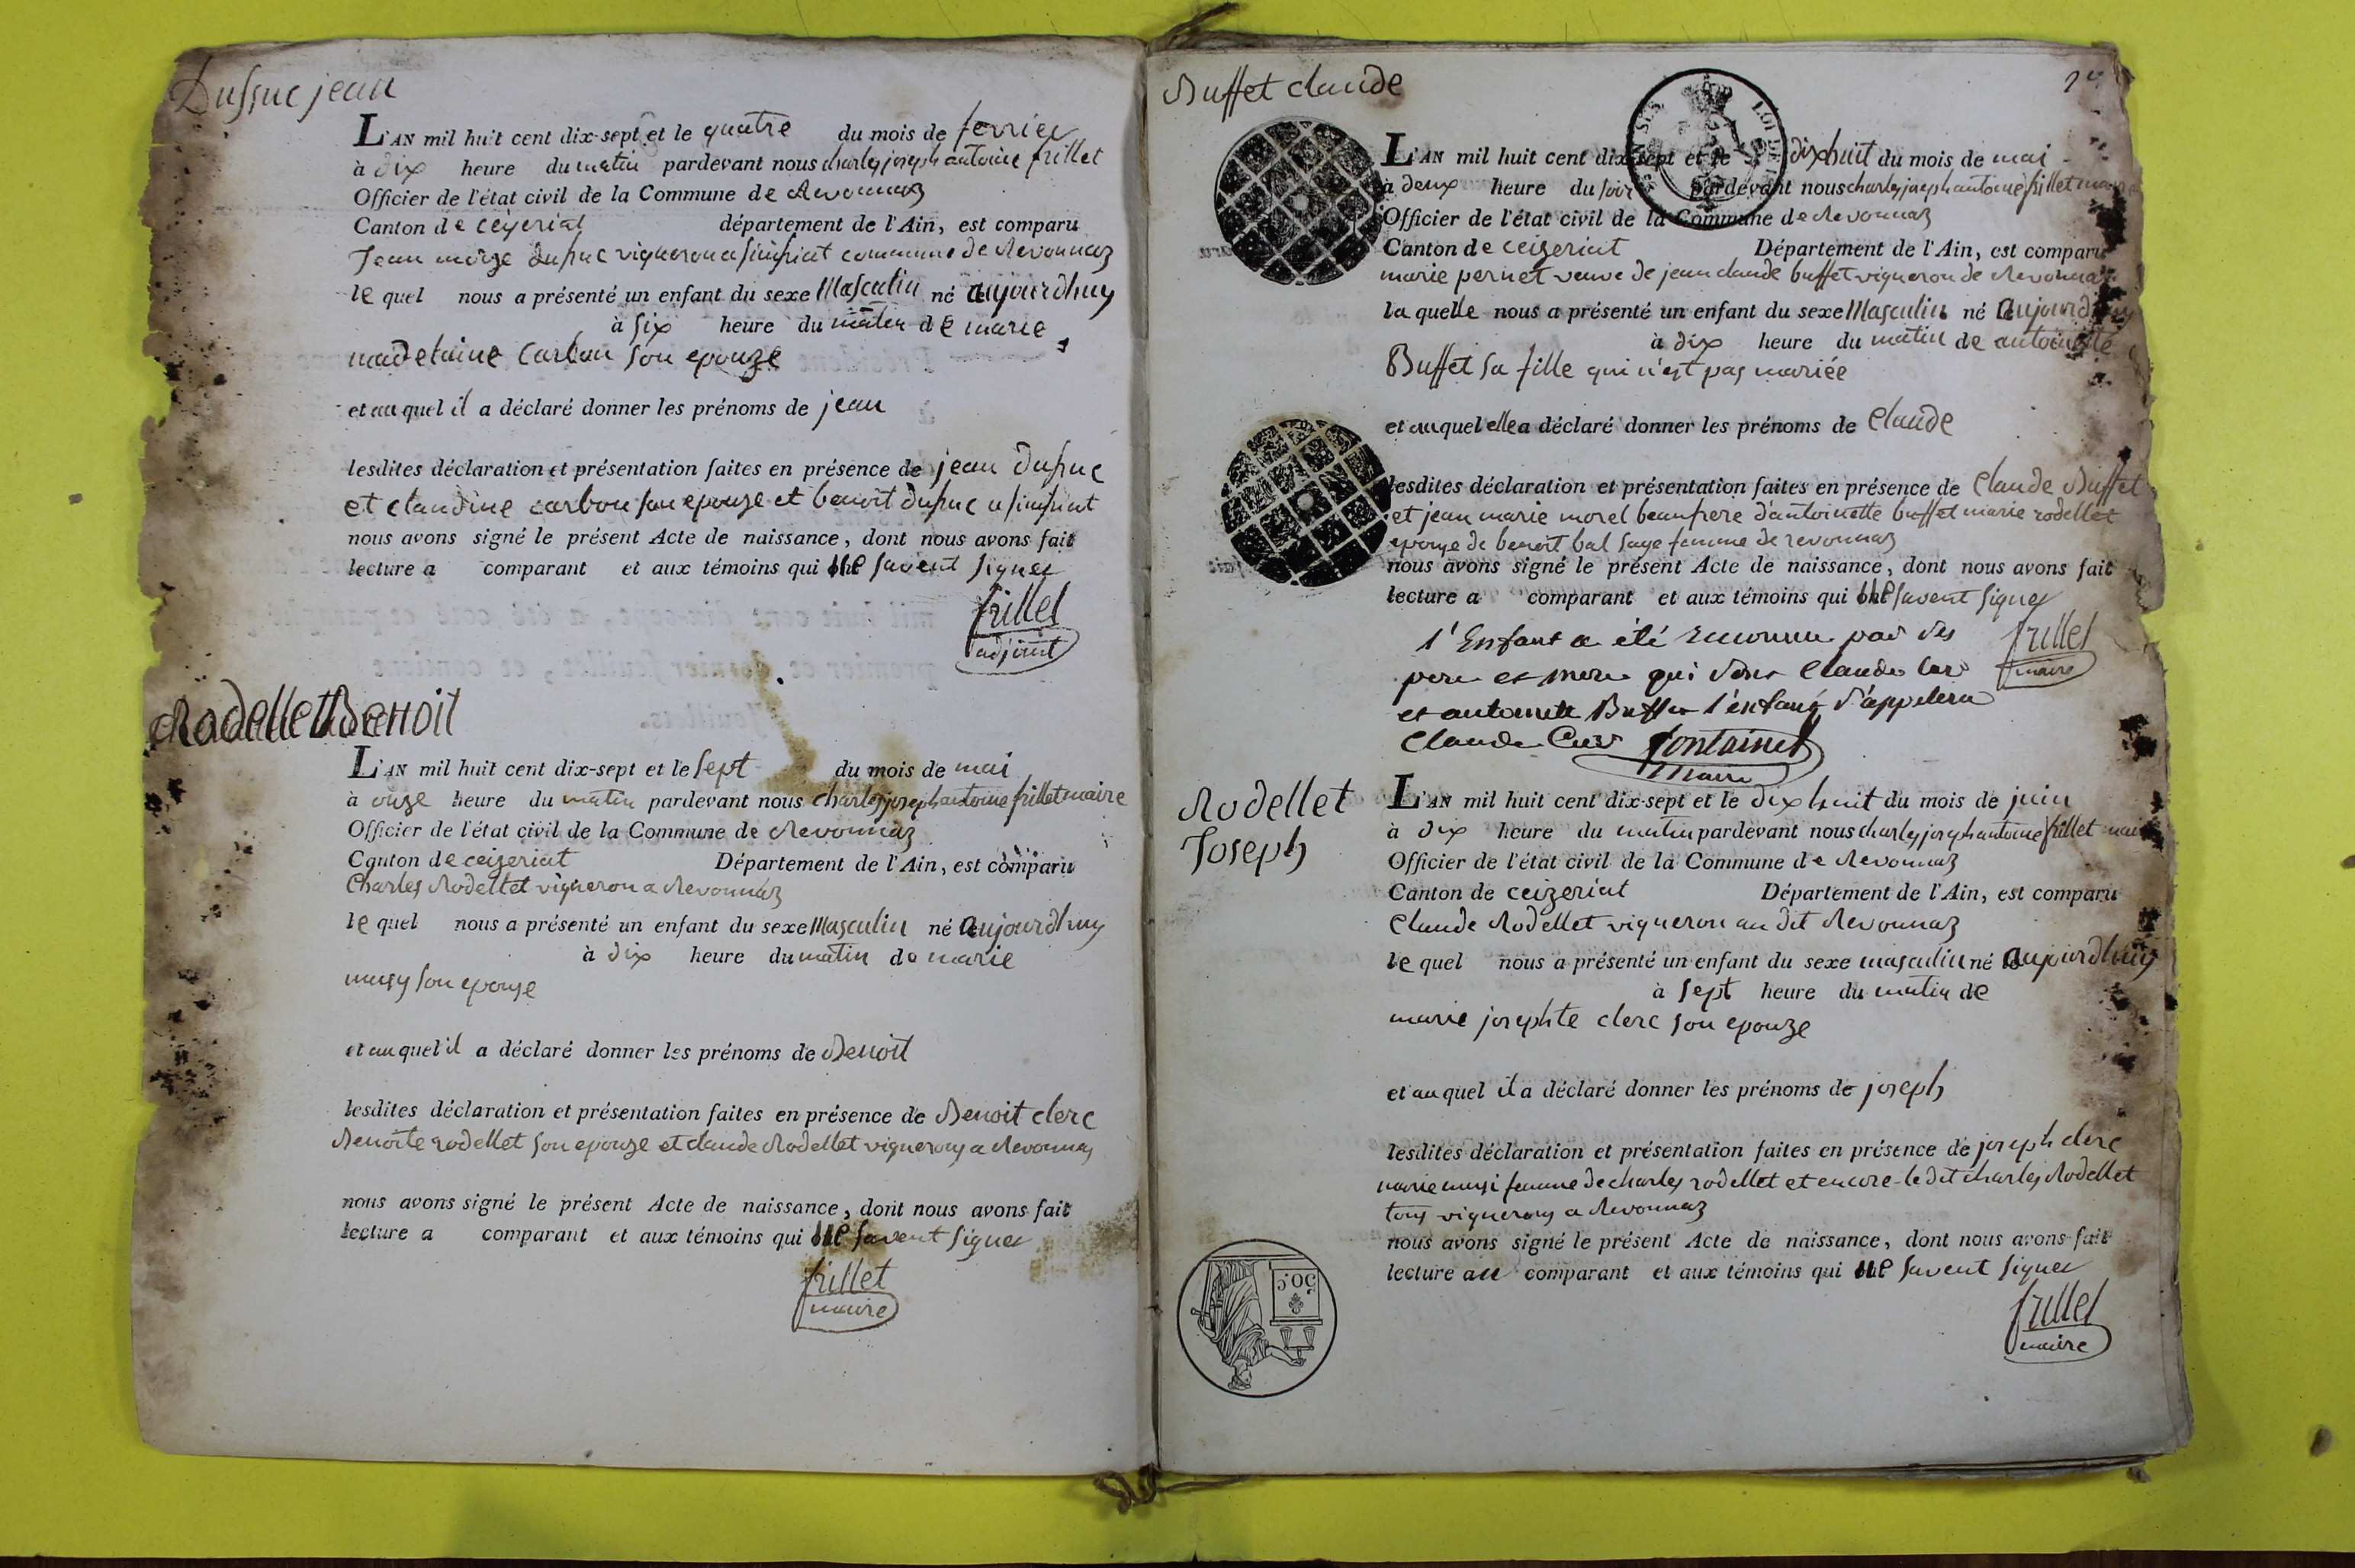 Dufsuc jean
L'AN mil huit cent dix-sept et le quatre du mois de fevrier
à dix heure du matin pardevant nous charles joseph antoine frillet
Officier de l'état civil de la Commune de Revonnaz
Canton de ceyzeriat département de l'Ain, est comparu
Jean dufsuc vigneron a commune de Revonnaz
le quel nous a présenté un enfant du sexe Masculin né aujourdhuy
à six heure du matin de marie
madelaine Carbon son epouze
et au quel il a déclaré donner les prénoms de jean
lesdites déclaration et présentation faites en présence de jean dufsuc
et claudine carbon son epouze et benoit dufsuc a
nous avons signé le présent Acte de naissance, dont nous avons fait
lecture a comparant et aux témoins qui ne savent signer
frillet
adjoint
Rodellet Benoit
L'AN mil huit cent dix-sept et le sept du mois de mai
à onze heure du matin pardevant nous charles joseph antoine frillet maire
Officier de l'état civil de la Commune de Revonnaz
Canton de ceizeriat Département de l'Ain, est comparu
Charles Rodellet vigneron a Revonnaz
le quel nous a présenté un enfant du sexe Masculin né aujourdhuy
à dix heure du matin de marie
musy son epouze
et au quel il a déclaré donner les prénoms de Benoit
lesdites déclaration et présentation faites en présence de Benoit clerc
Benoite rodellet son epouze et claude Rodellet vignerons a Revonnaz
nous avons signé le présent Acte de naissance, dont nous avons fait
lecture a comparant et aux témoins qui ne savent signer
frillet
maire
Buffet claude
L'AN mil huit cent dix-sept et le dixhuit du mois de mai
à deux heure du soir pardevant nous charles joseph antoine frillet maire
Officier de l'état civil de la Commune de Revonnaz
Canton de ceizeriat Département de l'Ain, est comparu
marie pernet veuve de jean claude buffet vigneron de Revonnaz
la quelle nous a présenté un enfant du sexe Masculin né aujourdhuy
à dix heure du matin de antoinette
Buffet sa fille qui n'est pas mariée
et au quel elle a déclaré donner les prénoms de Claude
lesdites déclaration et présentation faites en présence de Claude Buffet
et jean marie morel beaufrere d'antoinette buffet marie rodellet
epouze de benoit bal sage femme de revonnaz
nous avons signé le présent Acte de naissance, dont nous avons fait
lecture a comparant et aux témoins qui ne savent signer
frillet
maire
l'Enfant a été reconnu par ses
pere et mere qui sont Claude
et antoinette Buffet l'enfant s'appelera
Claude fontaine
maire
Rodellet
Joseph
L'AN mil huit cent dix-sept et le dixhuit du mois de juin
à dix heure du matin pardevant nous charles joseph antoine frillet maire
Officier de l'état civil de la Commune de Revonnaz
Canton de ceizeriat Département de l'Ain, est comparu
Claude Rodellet vigneron au dit Revonnaz
le quel nous a présenté un enfant du sexe masculin né aujourdhuy
à sept heure du matin de
marie josephte clerc son epouze
et au quel il a déclaré donner les prénoms de joseph
lesdites déclaration et présentation faites en présence de joseph clerc
marie musi femme de charles rodellet et encore le dit charles Rodellet
tous vignerons a Revonnaz
nous avons signé le présent Acte de naissance, dont nous avons fait
lecture au comparant et aux témoins qui ne savent signer
50.C
frillet
maire